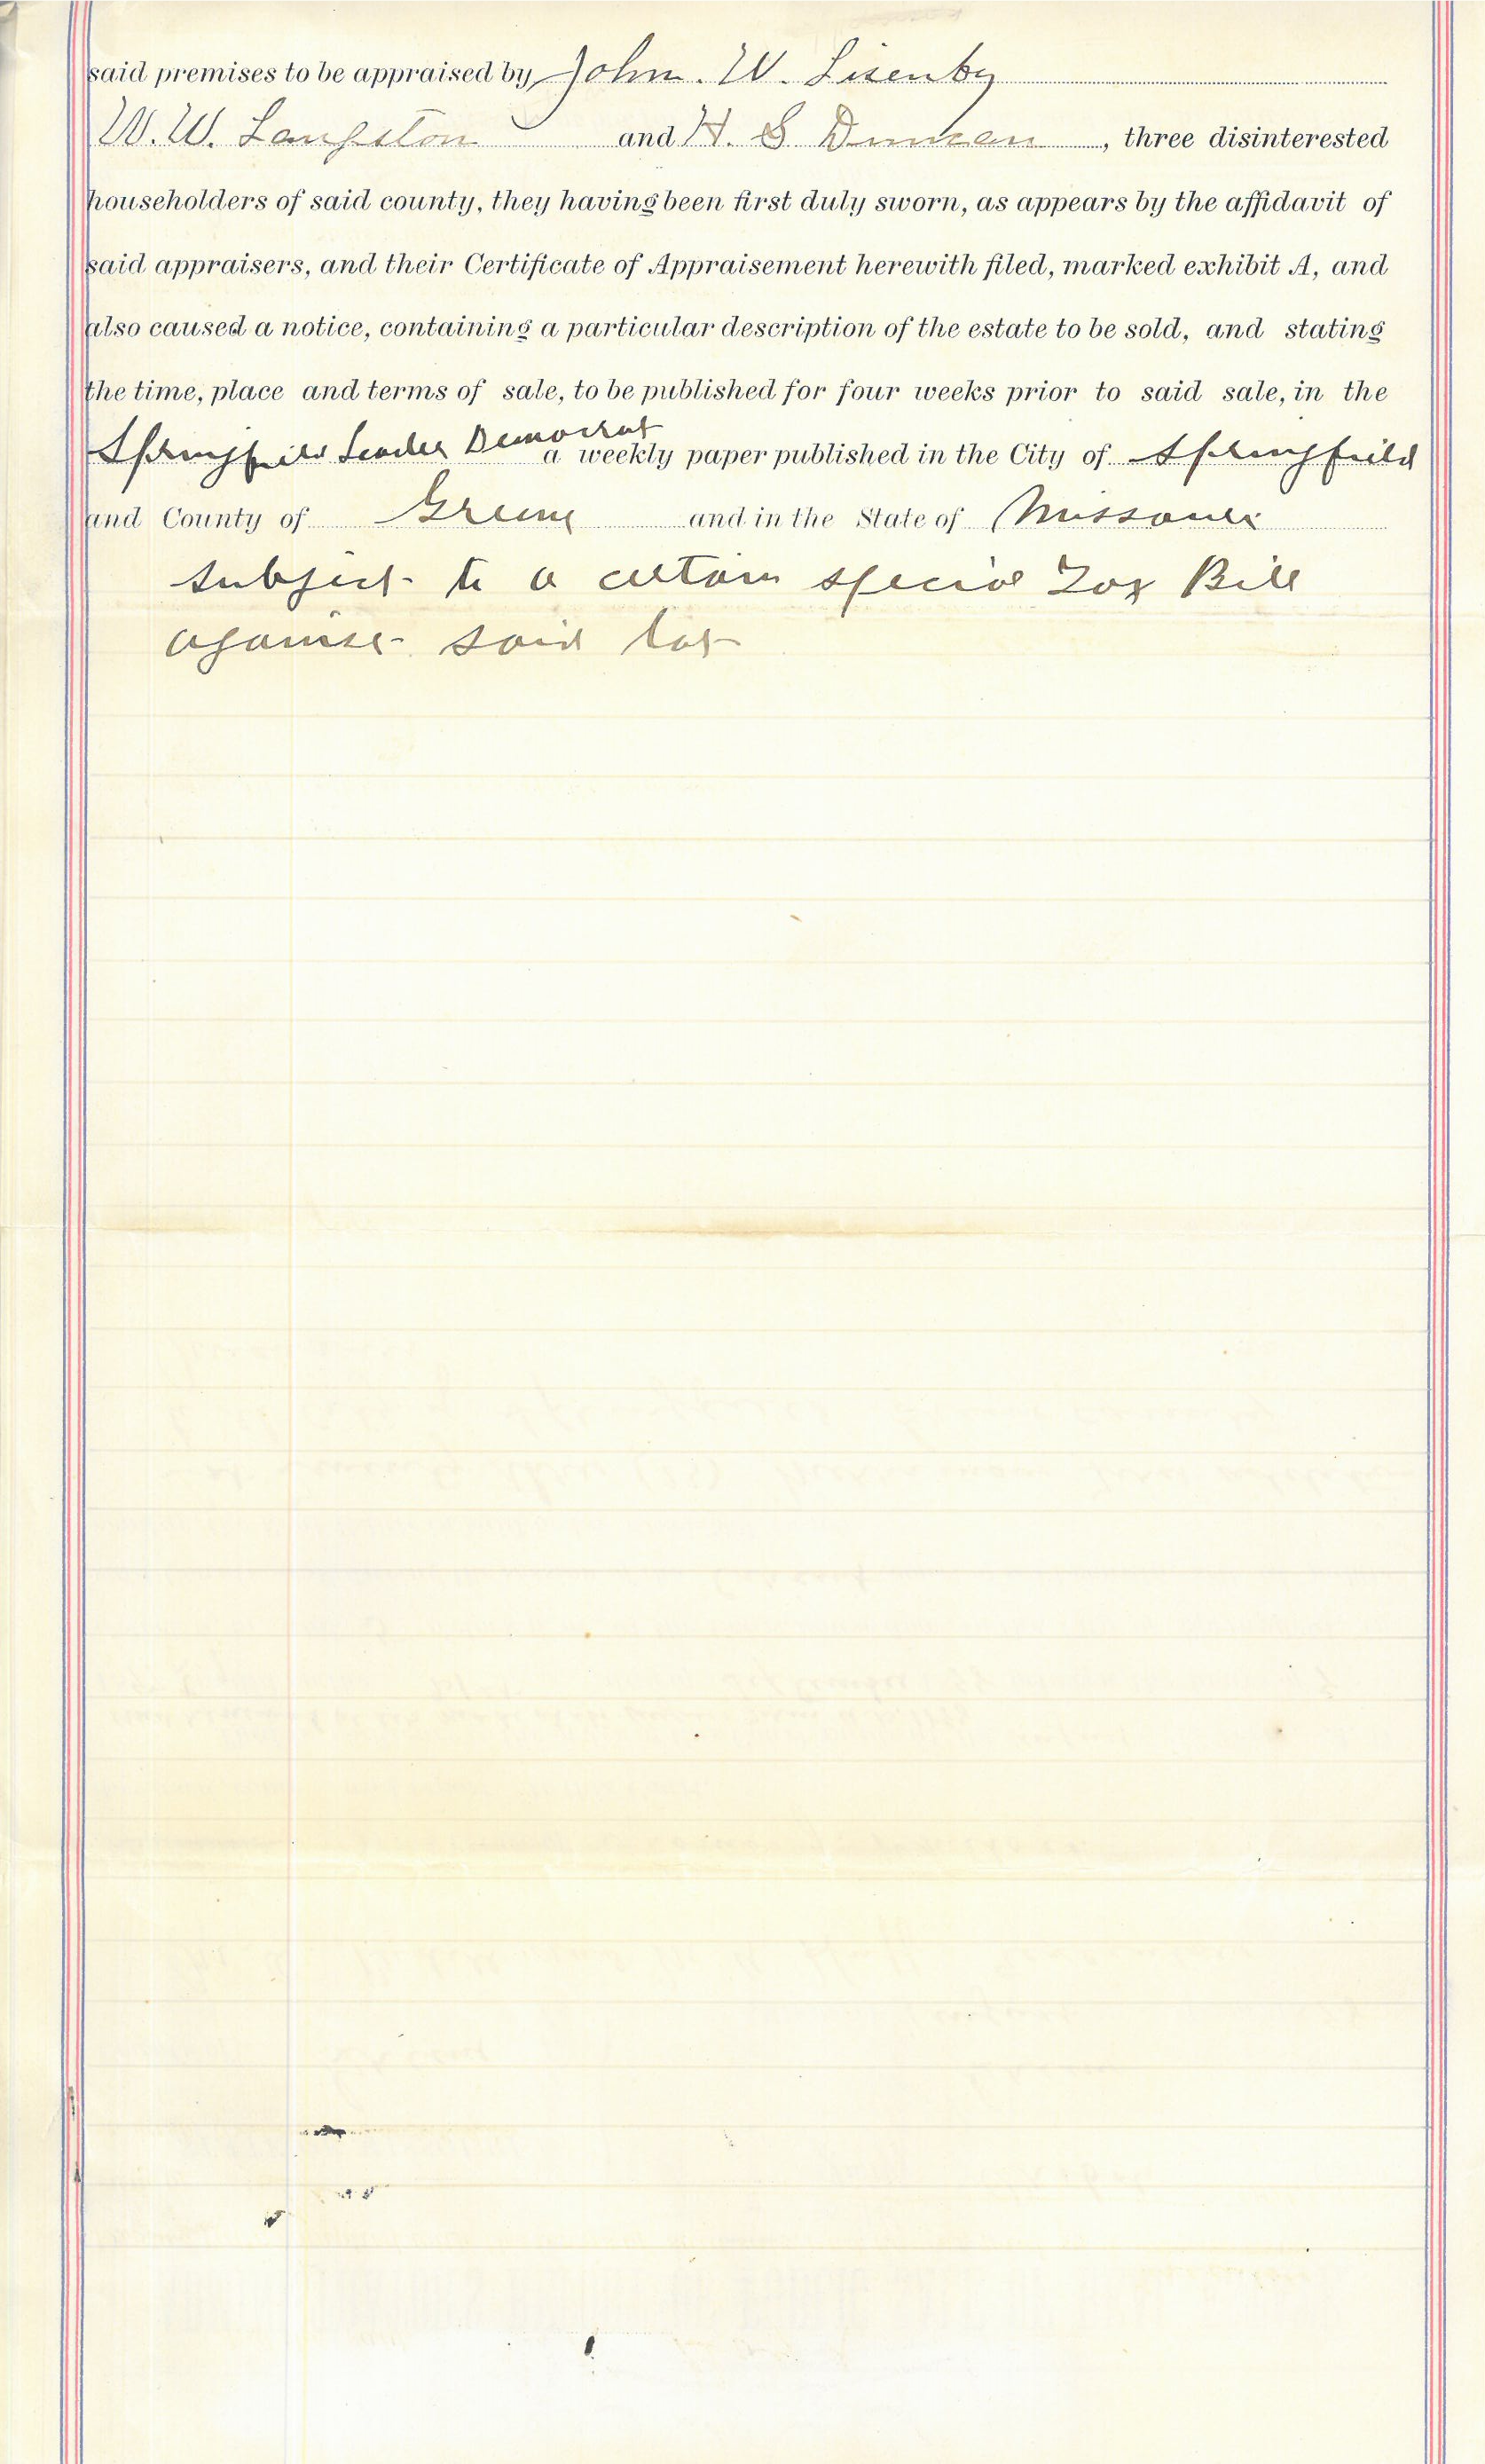 said premises to be appraised by John. W. Lisenby
W. W. Langston and H. S Duncan, three disinterested
householders of said county, they having been first duly sworn, as appears by the affidavit of
said appraisers, and their Certificate of Appraisement herewith filed, marked exhibit A, and
also caused a notice, containing a particular description of the estate to be sold, and stating
the time, place and terms of sale, to be published for four weeks prior to said sale, in the
Springfield Leader Democrat a weekly paper published in the City of Springfield
and County of Greene and in the State of Missouri
subject to a certain special Tax Bill
against said lot